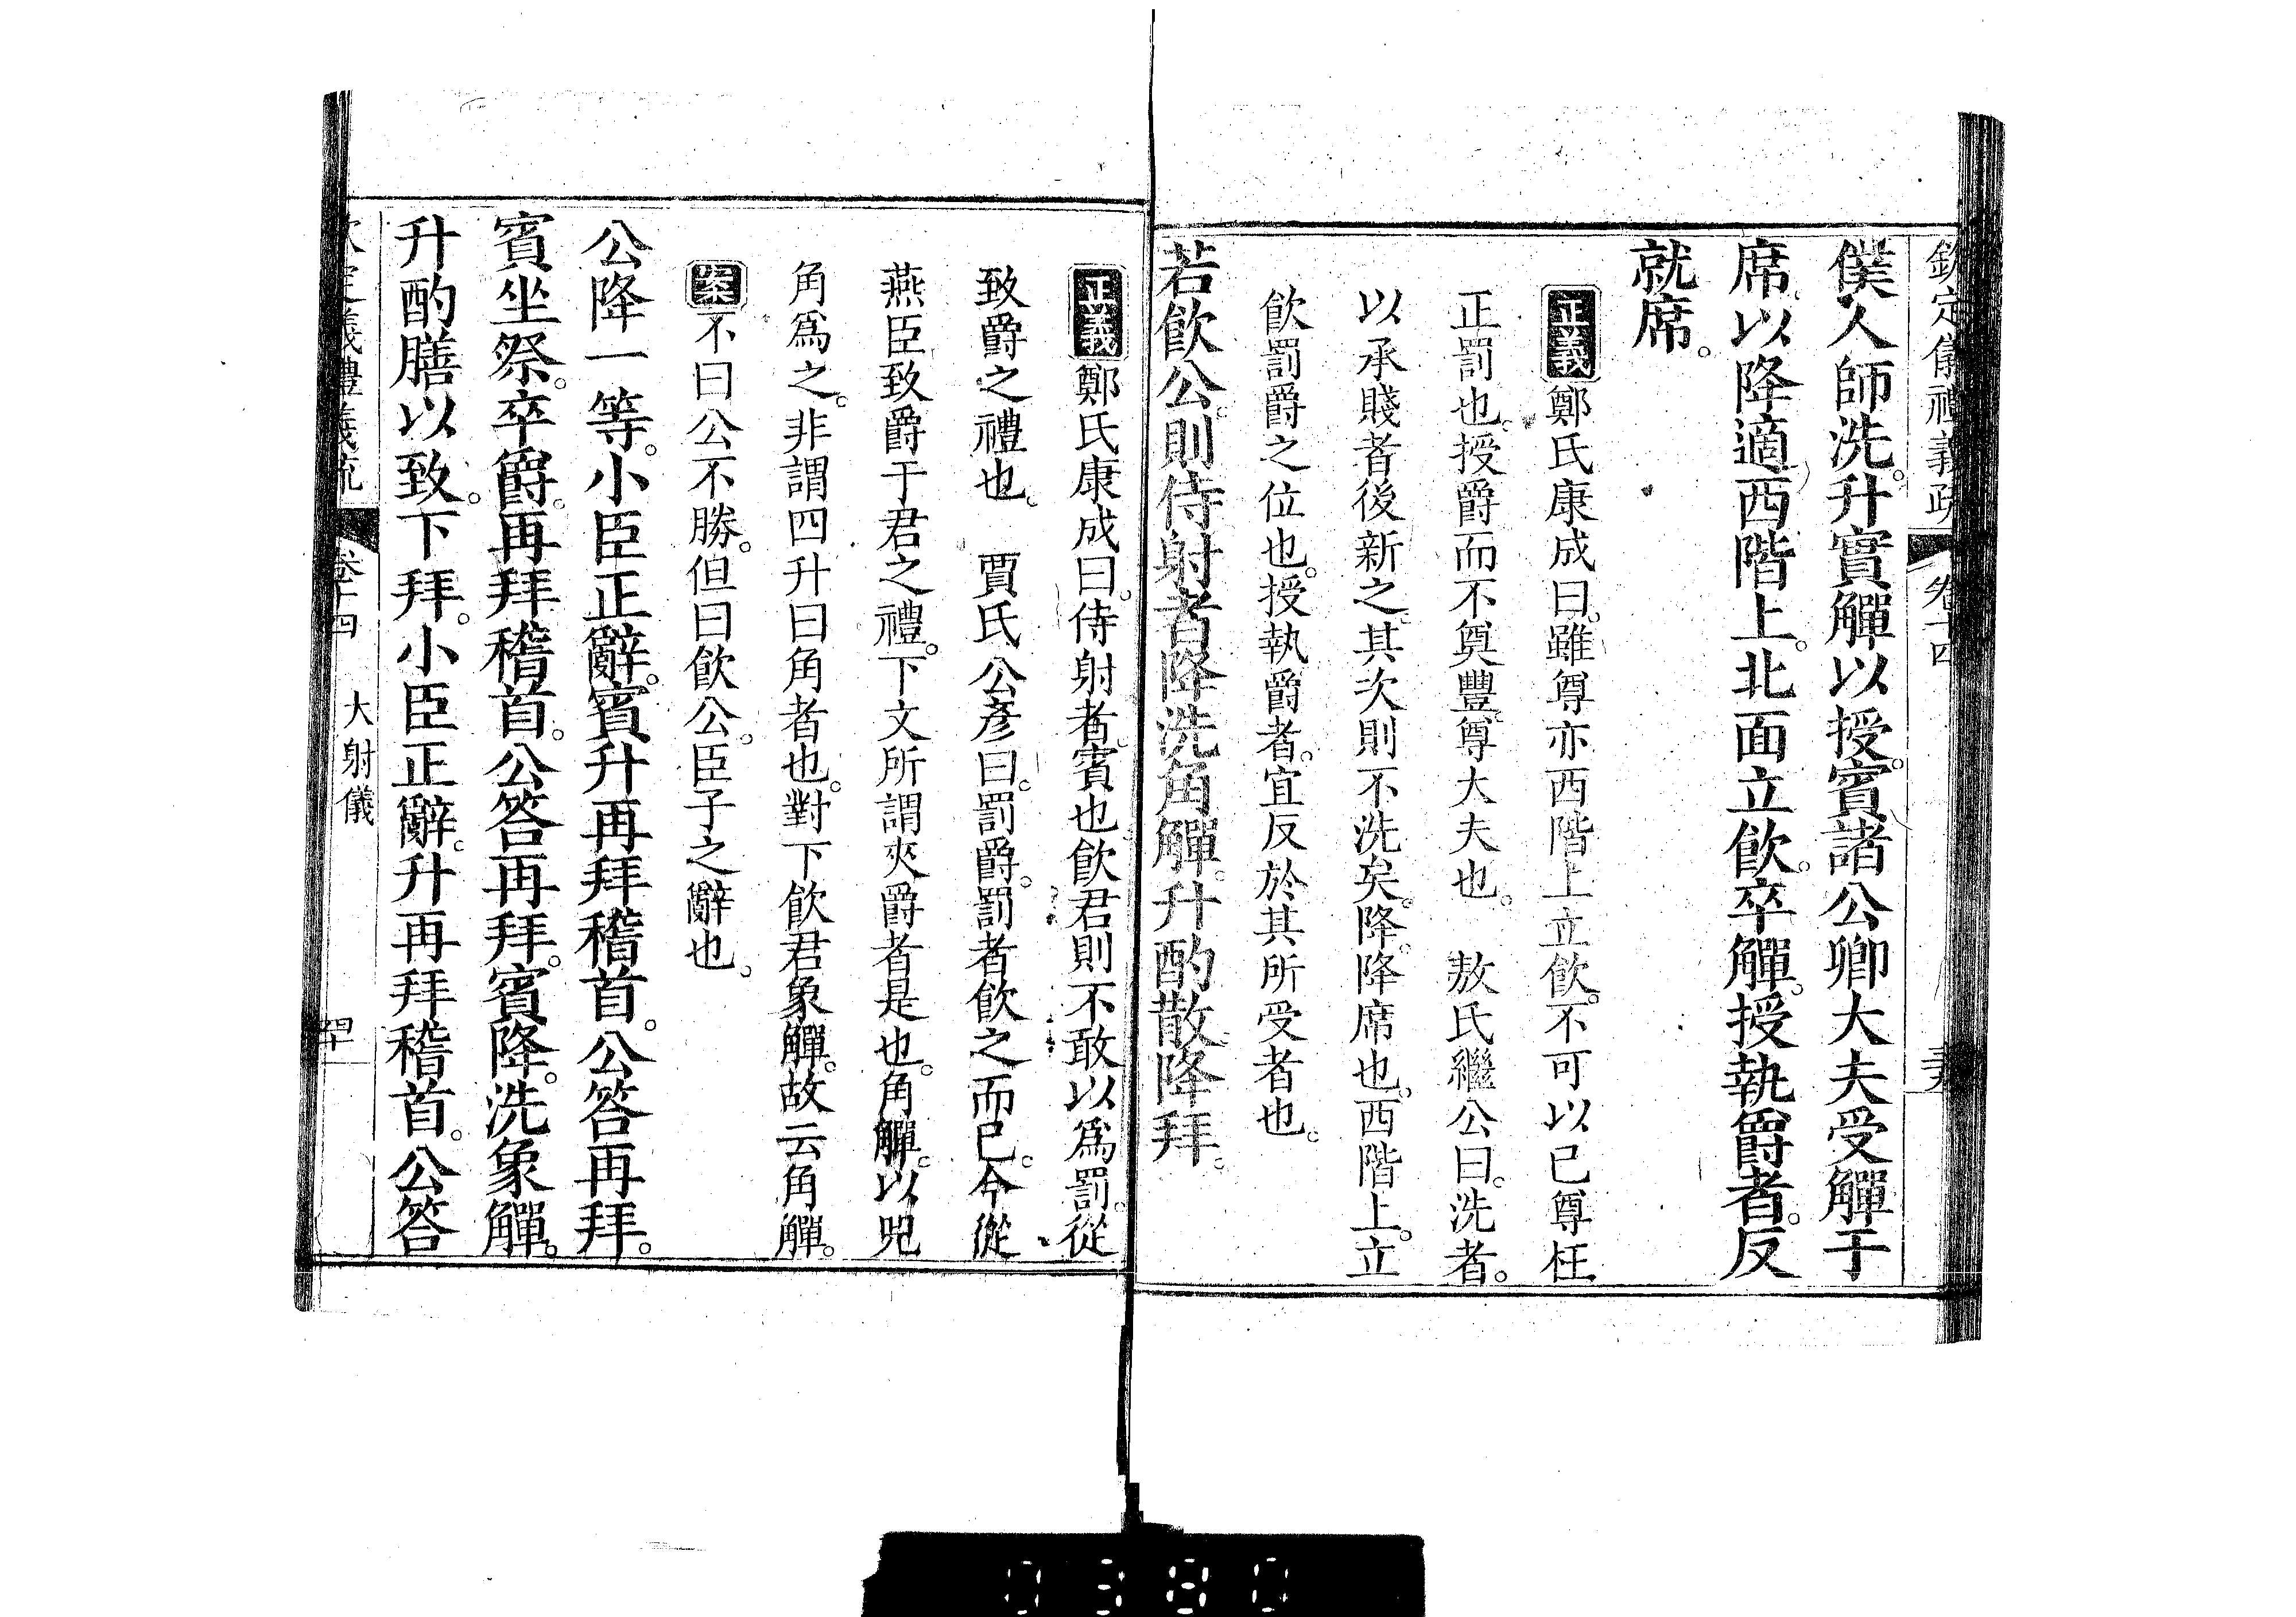 欽定儀禮義疏 卷十四
僕人師洗。升實觶以授。賓諸公卿大夫受觶于
席。以降適西階上。北面立飲。卒觶。授執爵者。反
就席。
正義鄭氏康成曰。雖尊亦西階上立飲。不可以己尊枉
正罰也。授爵而不奠豐。尊大夫也。 敖氏繼公曰。洗者。
以承賤者後新之。其次則不洗矣。降。降席也。西階上。立
飲罰爵之位也。授執爵者。宜反於其所受者也。
若飲公。則侍射者降洗角觶。升酌散。降拜。
正義鄭氏康成曰。侍射者。賓也飲君則不敢以爲罰。從
致爵之禮也。 賈氏公彥曰。罰爵。罰者飲之而已。今從
燕臣致爵于君之禮。下文所謂夾爵者是也。角觶。以兕
角爲之。非謂四升曰角者也。對下飲君象觶。故云角觶。
案不曰公不勝。但曰飲公。臣子之辭也。
公降一等。小臣正辭。賓升再拜稽首。公答再拜。
賓坐祭。卒爵。再拜稽首。公答再拜。賓降。洗象觶。
升酌膳以致。下拜。小臣正辭。升再拜稽首。公答
欽定儀禮義疏 卷十四 大射儀
0380